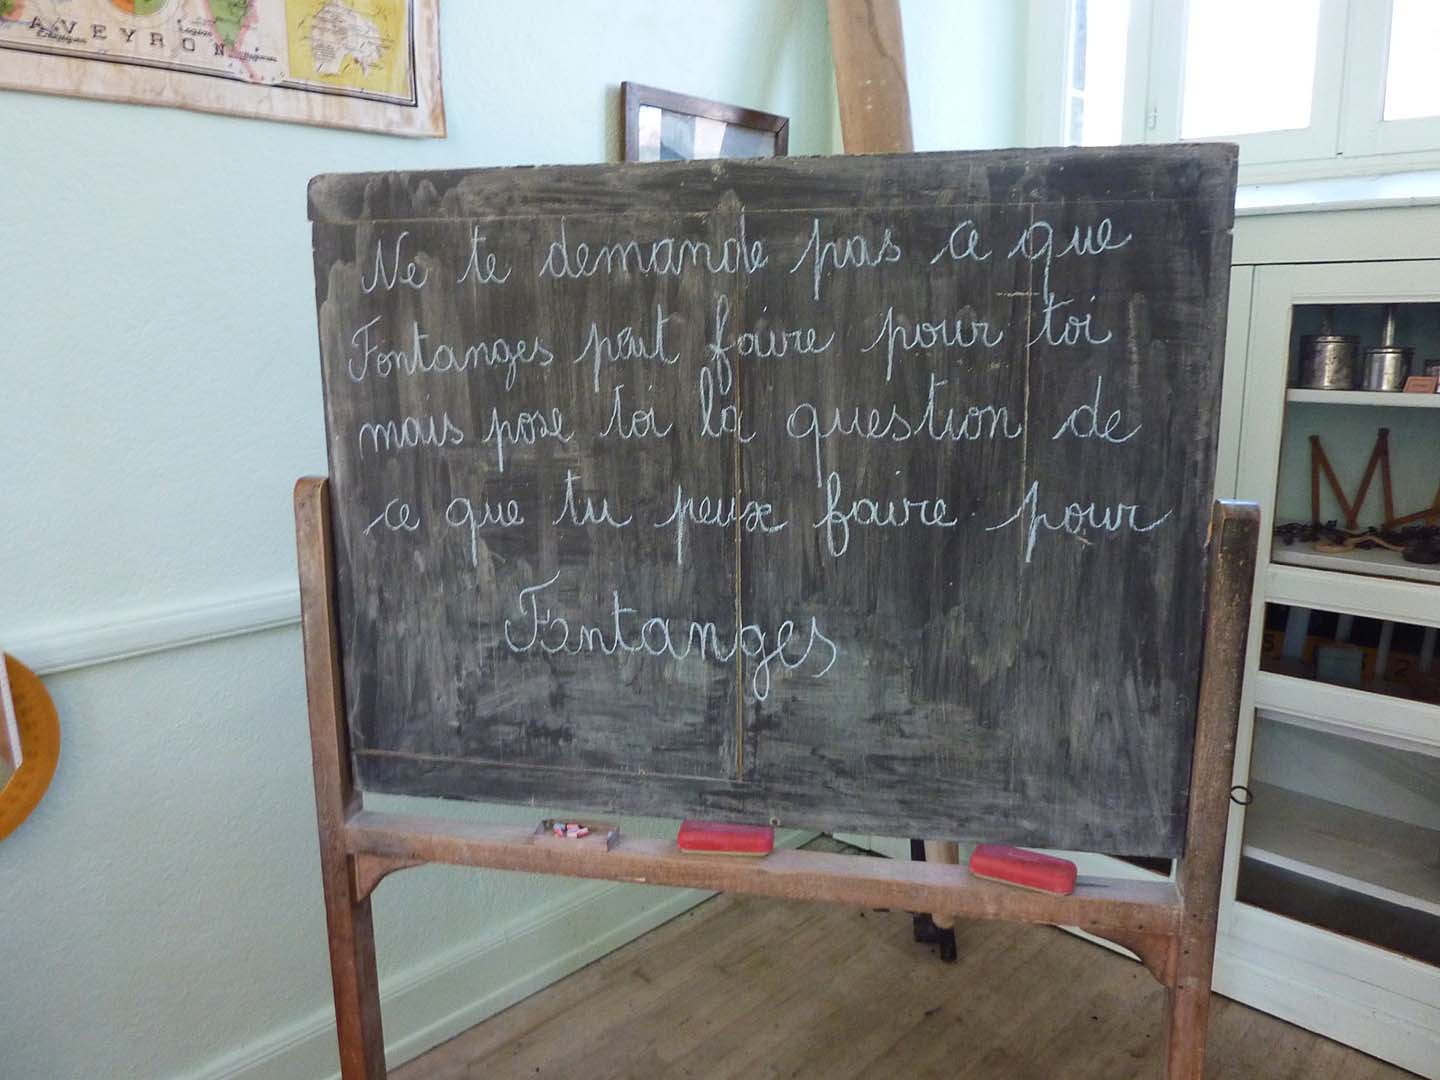 AVEYRON
Ne te demande pas ce que
Fontanges peut faire pour toi
mais pose toi la question de
ce que tu peux faire pour
Fontanges